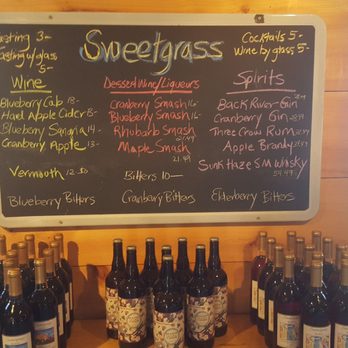 Tasting 3-
Tasting w/glass
5-
Sweetgrass
Cocktails 5-
Wine by glass 5-
Wine
Blueberry Cab 13-
Hard Apple Cider 13-
Blueberry Sangria 14-
Cranberry Apple 13-
Vermouth 12.50
Dessert Wine/Liqueurs
Cranberry Smash 16-
Blueberry Smash 16-
Rhubarb Smash
21.49
Maple Smash
21.49
Bitters 10-
Spirits
Back River Gin
Cranberry Gin
Three Crow Rum
Apple Brandy
Sunk Haze SM Whisky
Blueberry Bitters
Cranbary Bitters
Elderberry Bitters